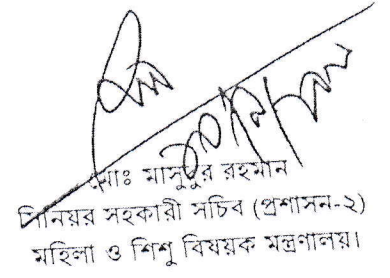 মোঃ মাসুদুর রহমান
সিনিয়র সহকারী সচিব (প্রশাসন-২)
মহিলা ও শিশু বিষয়ক মন্ত্রণালয়।